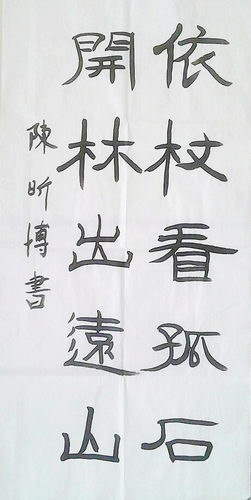 依杖看孤石
開林出遠山
陳昕博書